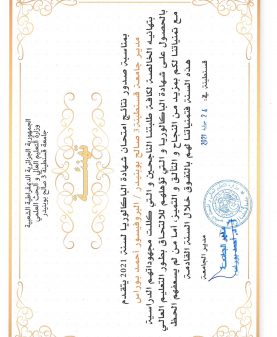 الجمهورية الجزائرية الديمقراطية الشعبية
وزارة التعليم العالي و البحث العلمي
جامعة قسنطينة 3 صالح بوبنيدر
تهنئة
بمناسبة صدور نتائج امتحان شهادة الباكالوريا لسنة 2021 يتقدم
مدير جامعة قسنطينة 3 صالح بوبنيدر ، البروفيسور أحمد بوراس
بتهانيه الخالصة لكافة طلبتنا الناجحين و التي كللت مجهوداتهم الدراسية
بالحصول على شهادة الباكالوريا و التي تؤهلهم للالتحاق بطور التعليم العالي
مع تمنياتنا لكم بمزيد من النجاح و التألق و التميز، أما من لم يسعفهم الحظ
هذه السنة فتمنياتنا لهم بالتفوق خلال السنة القادمة
قسنطينة في: 2021
مدير الجامعة